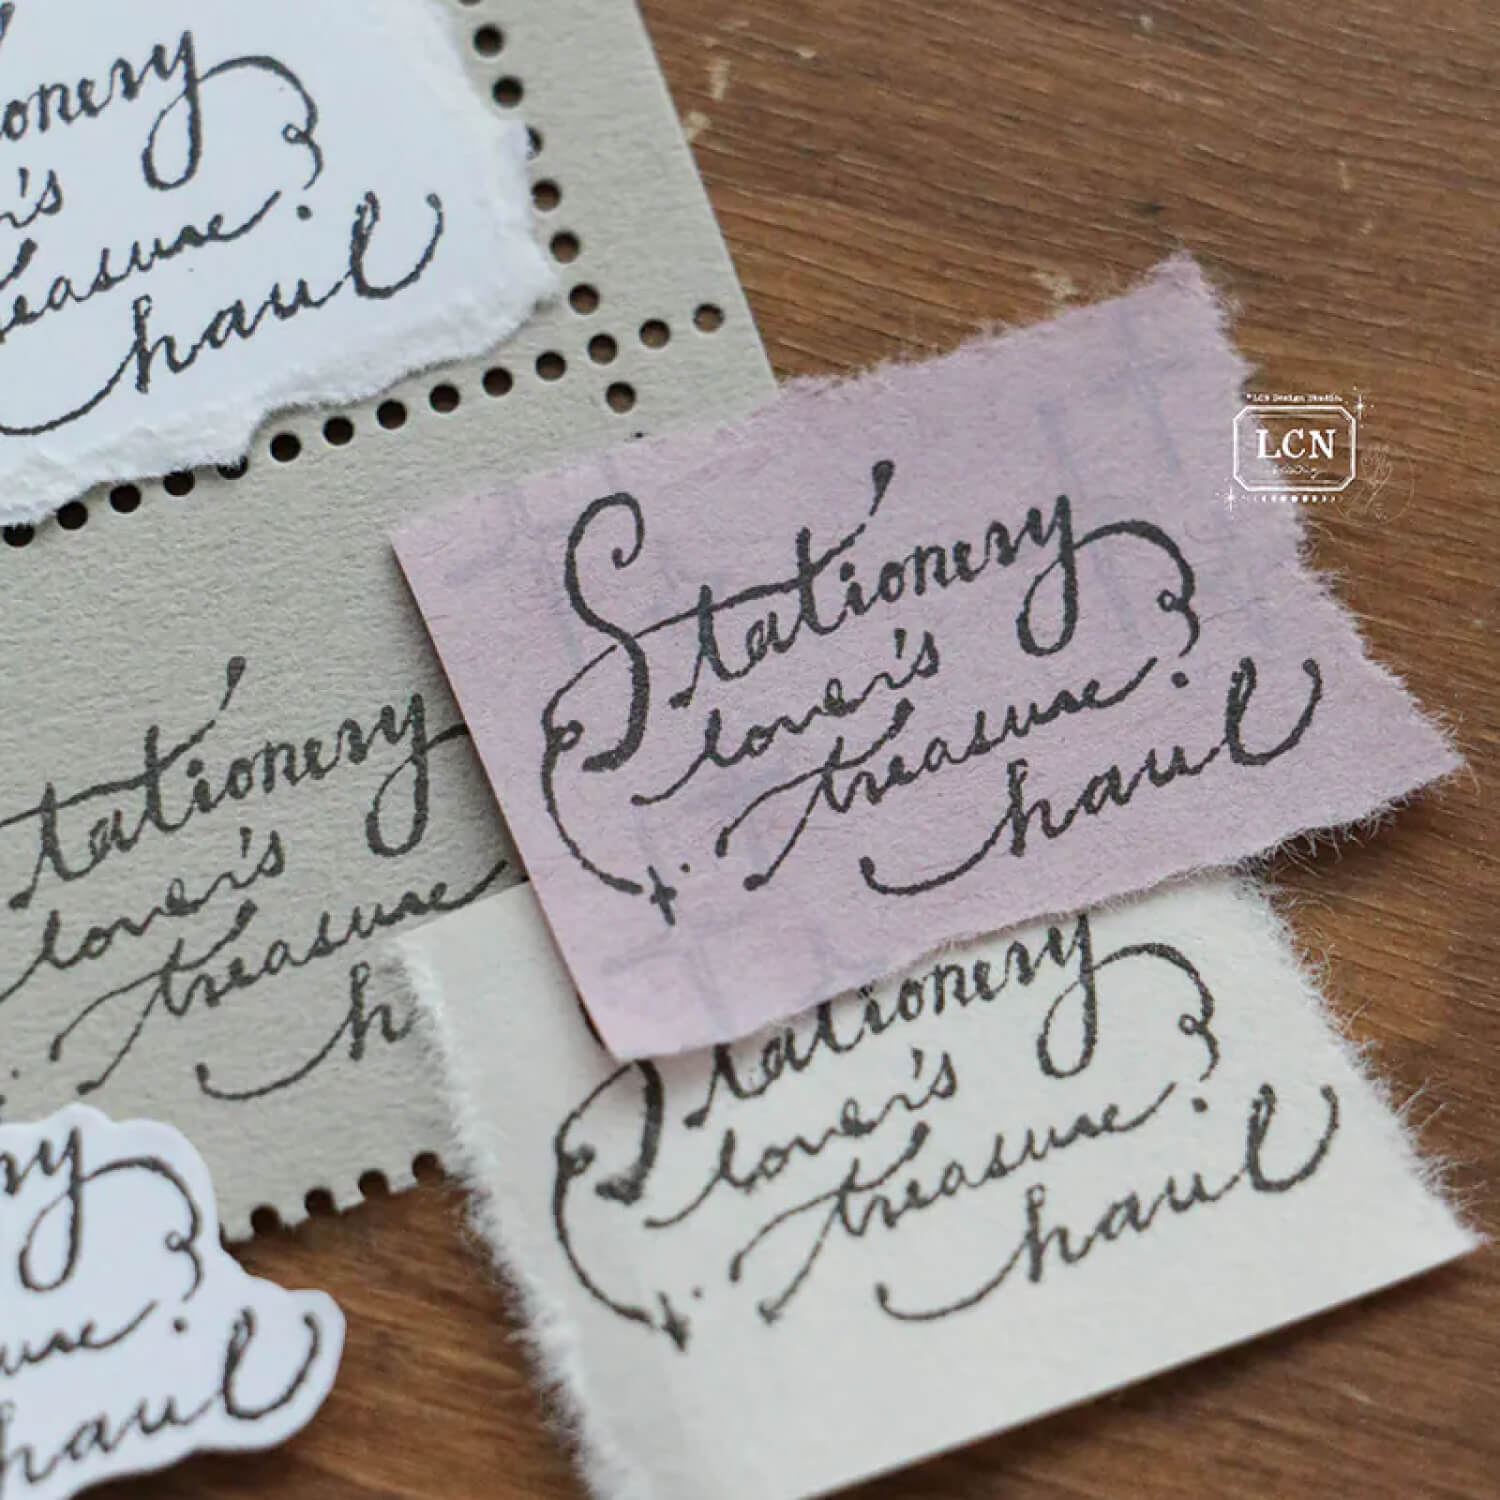 onery
r's
reasure
haul
LCN Design Studio.
LCN
Stationery
lover's
treasure
haul
tationery
lover's
treasure
h
Stationery
lover's
treasure
haul
ry
ure
haul